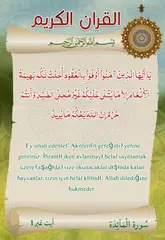 القرآن الكريم
بسم الله الرحمن الرحيم
يَا أَيُّهَا الَّذِينَ آمَنُوا أَوْفُوا بِالْعُقُودِ أُحِلَّتْ لَكُم بَهِيمَةُ
الْأَنْعَامِ إِلَّا مَا يُتْلَىٰ عَلَيْكُمْ غَيْرَ مُحِلِّي الصَّيْدِ وَأَنتُمْ
حُرُمٌ إِنَّ اللَّهَ يَحْكُمُ مَا يُرِيدُ
Ey iman edenler! Akitlerin gereğini yerine
getiriniz. İhramlı iken avlanmayı helal saymamak
üzere (aşağıda) size okunacaklar dışında kalan
hayvanlar, sizin için helal kılındı. Allah dilediğine
hükmeder.
سُورَةُ الْمَائِدَةِ
آیت نمبر 1